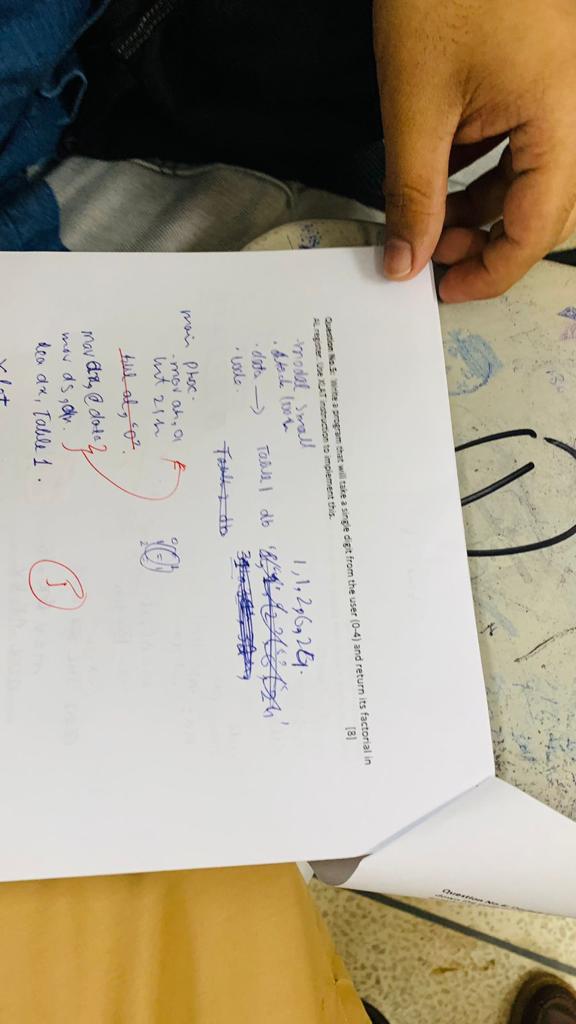 Question No.5: Write a program that will take a single digit from the user (0-4) and return its factorial in
AL register. Use XLAT instruction to implement this. (8)
.model small
.stack 100h
.data → Table 1 db 1,1,2,6,24.
.code
main Proc.
mov ah, 01
int 21h
sub al, '0'
mov dx, @data
mov ds, dx
lea dx, Table 1.
Xlat
Question No.6: